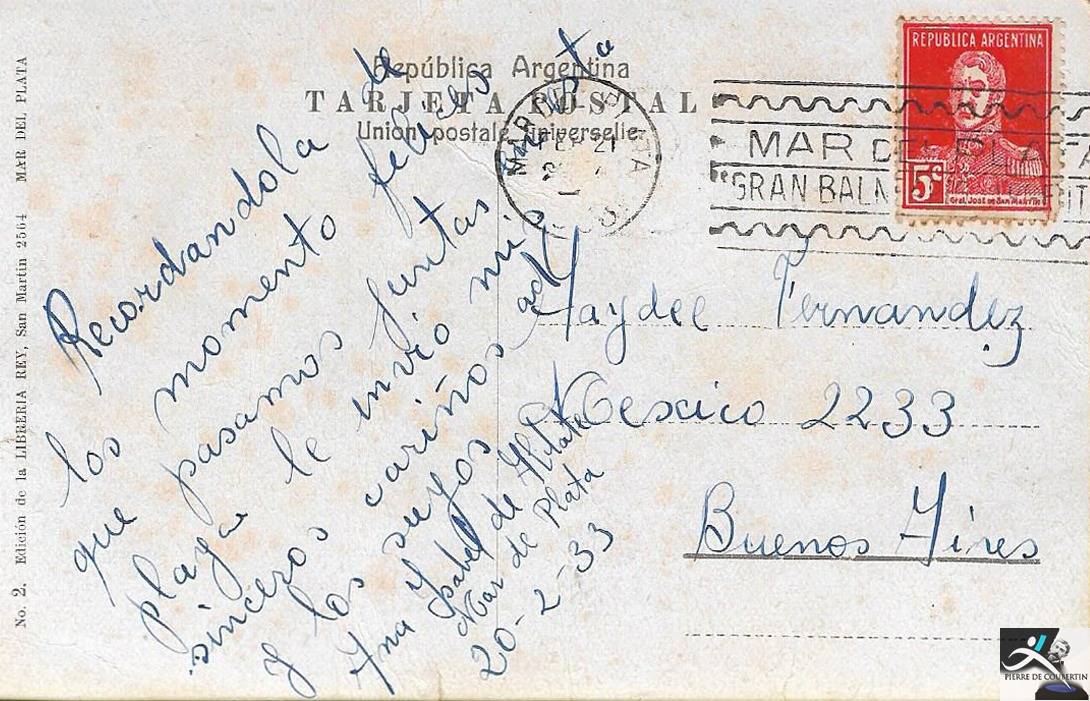 República Argentina
TARJETA POSTAL
Union postale universelle
No. 2. Edición de la LIBRERIA REY, San Martin 2564 MAR DEL PLATA
REPUBLICA ARGENTINA
5c
Gral. José de San Martín
MAR DEL PLATA
FEB 21
MAR DEL PLATA
GRAN BALN
Recordandola de
los momento felices
que pasamos juntas en esta
playa le invió mis
sinceros cariños a d
y los suyos
Ana Ysabel de
Mar de Plata
20-2-33
Haydee Fernandez
Mexico 2233
Buenos Aires
PIERRE DE COUBERTIN